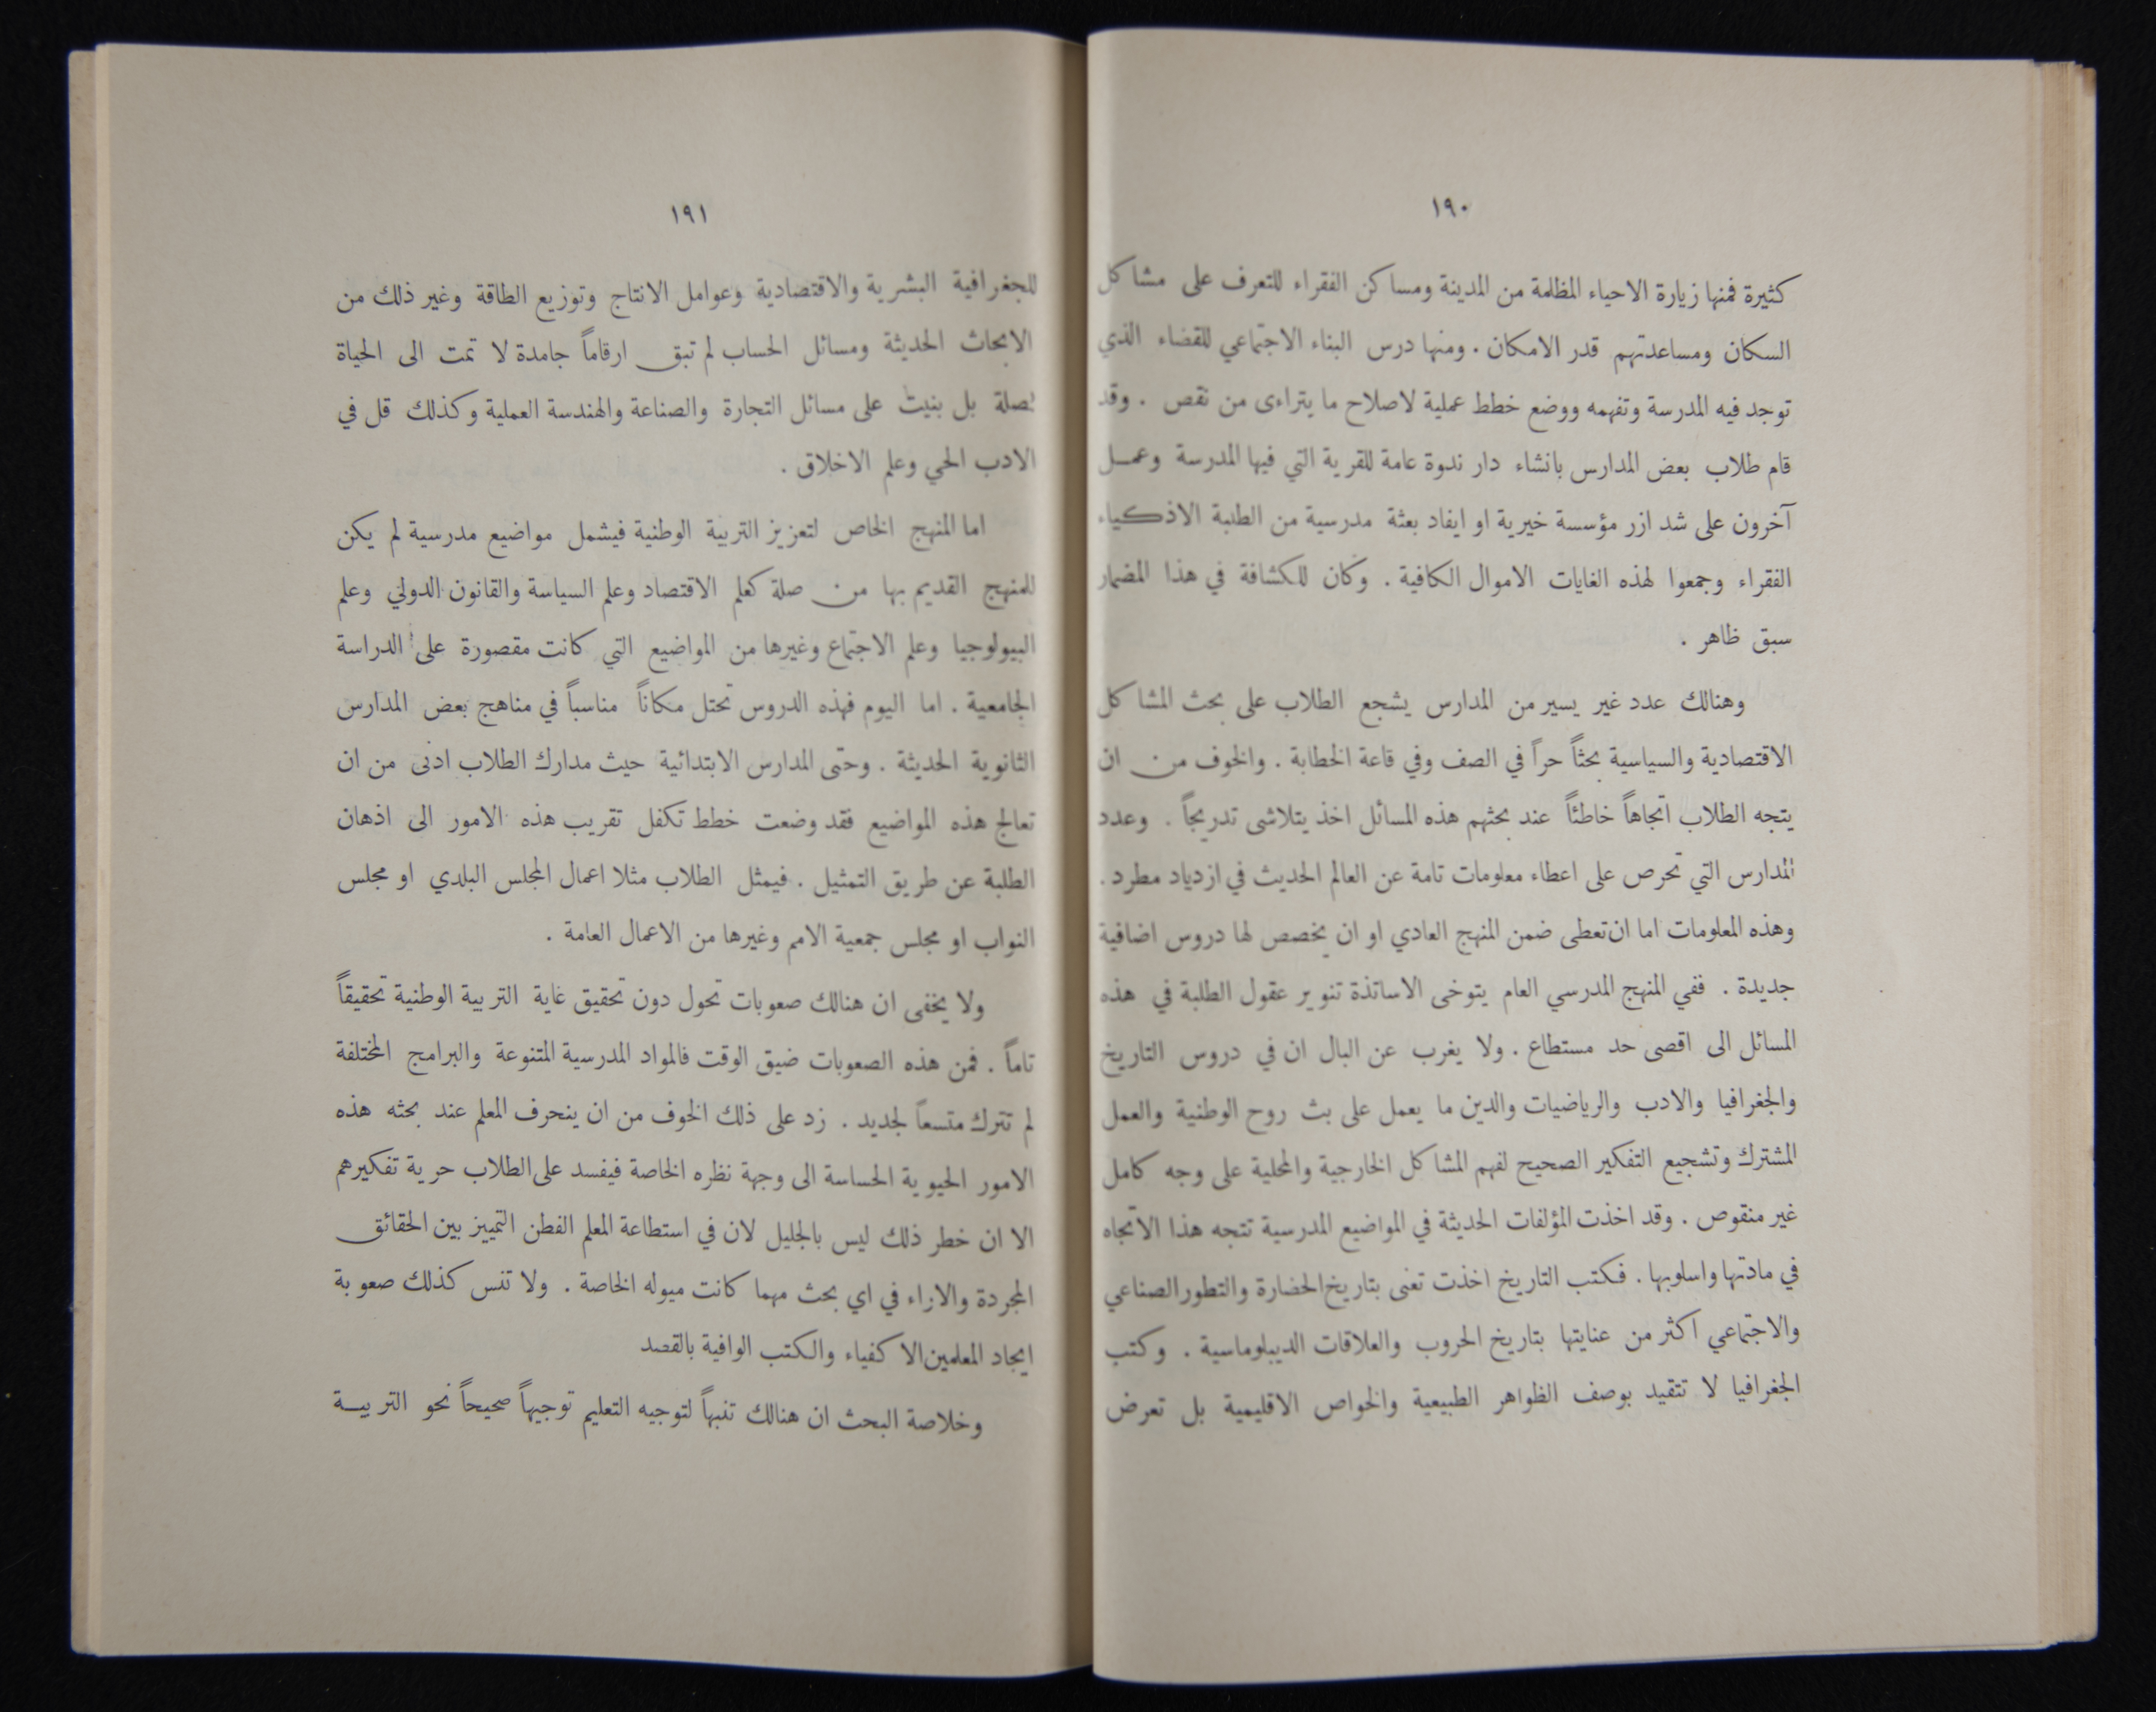 ١٩٠
كثيرة فمنها زيارة الاحياء المظلمة من المدينة ومساكن الفقراء للتعرف على مشاكل
السكان ومساعدتهم قدر الامكان . ومنها درس البناء الاجتماعي للقضاء الذي
توجد فيه المدرسة وتفهمه ووضع خطط عملية لاصلاح ما يتراءى من نقص . وقد
قام طلاب بعض المدارس بانشاء دار ندوة عامة للقرية التي فيها المدرسة وعمل
آخرون على شد ازر مؤسسة خيرية او ايفاد بعثة مدرسية من الطلبة الاذكياء
الفقراء وجمعوا لهذه الغايات الاموال الكافية . وكان للكشافة في هذا المضمار
سبق ظاهر .
وهنالك عدد غير يسير من المدارس يشجع الطلاب على بحث المشاكل
الاقتصادية والسياسية بحثاً حراً في الصف وفي قاعة الخطابة . والخوف من ان
يتجه الطلاب اتجاهاً خاطئاً عند بحثهم هذه المسائل اخذ يتلاشى تدريجاً . وعدد
المدارس التي تحرص على اعطاء معلومات تامة عن العالم الحديث في ازدياد مطرد .
وهذه المعلومات اما ان تعطى ضمن المنهج العادي او ان يخصص لها دروس اضافية
جديدة . ففي المنهج المدرسي العام يتوخى الاساتذة تنوير عقول الطلبة في هذه
المسائل الى اقصى حد مستطاع . ولا يغرب عن البال ان في دروس التاريخ
والجغرافيا والادب والرياضيات والدين ما يعمل على بث روح الوطنية والعمل
المشترك وتشجيع التفكير الصحيح لفهم المشاكل الخارجية والمحلية على وجه كامل
غير منقوص . وقد اخذت المؤلفات الحديثة في المواضيع المدرسية تتجه هذا الاتجاه
في مادتها واسلوبها . فكتب التاريخ اخذت تعنى بتاريخ الحضارة والتطور الصناعي
والاجتماعي اكثر من عنايتها بتاريخ الحروب والعلاقات الديبلوماسية . وكتب
الجغرافيا لا تتقيد بوصف الظواهر الطبيعية والخواص الاقليمية بل تعرض
١٩١
للجغرافية البشرية والاقتصادية وعوامل الانتاج وتوزيع الطاقة وغير ذلك من
الابحاث الحديثة ومسائل الحساب لم تبق ارقاماً جامدة لا تمت الى الحياة
بصلة بل بنيت على مسائل التجارة والصناعة والهندسة العملية وكذلك قل في
الادب الحي وعلم الاخلاق .
اما المنهج الخاص لتعزيز التربية الوطنية فيشمل مواضيع مدرسية لم يكن
للمنهج القديم بها من صلة كعلم الاقتصاد وعلم السياسة والقانون الدولي وعلم
البيولوجيا وعلم الاجتماع وغيرها من المواضيع التي كانت مقصورة على الدراسة
الجامعية . اما اليوم فهذه الدروس تحتل مكاناً مناسباً في مناهج بعض المدارس
الثانوية الحديثة . وحتى المدارس الابتدائية حيث مدارك الطلاب ادنى من ان
تعالج هذه المواضيع فقد وضعت خطط تكفل تقريب هذه الامور الى اذهان
الطلبة عن طريق التمثيل . فيمثل الطلاب مثلا اعمال المجلس البلدي او مجلس
النواب او مجلس جمعية الامم وغيرها من الاعمال العامة .
ولا يخفى ان هنالك صعوبات تحول دون تحقيق غاية التربية الوطنية تحقيقاً
تاماً . فمن هذه الصعوبات ضيق الوقت فالمواد المدرسية المتنوعة والبرامج المختلفة
لم تترك متسعاً لجديد . زد على ذلك الخوف من ان ينحرف المعلم عند بحثه هذه
الامور الحيوية الحساسة الى وجهة نظره الخاصة فيفسد على الطلاب حرية تفكيرهم
الا ان خطر ذلك ليس بالجليل لان في استطاعة المعلم الفطن التمييز بين الحقائق
المجردة والاراء في اي بحث مهما كانت ميوله الخاصة . ولا تنس كذلك صعوبة
ايجاد المعلمين الاكفياء والكتب الوافية بالقصد
وخلاصة البحث ان هنالك تنبهاً لتوجيه التعليم توجيهاً صحيحاً نحو التربية